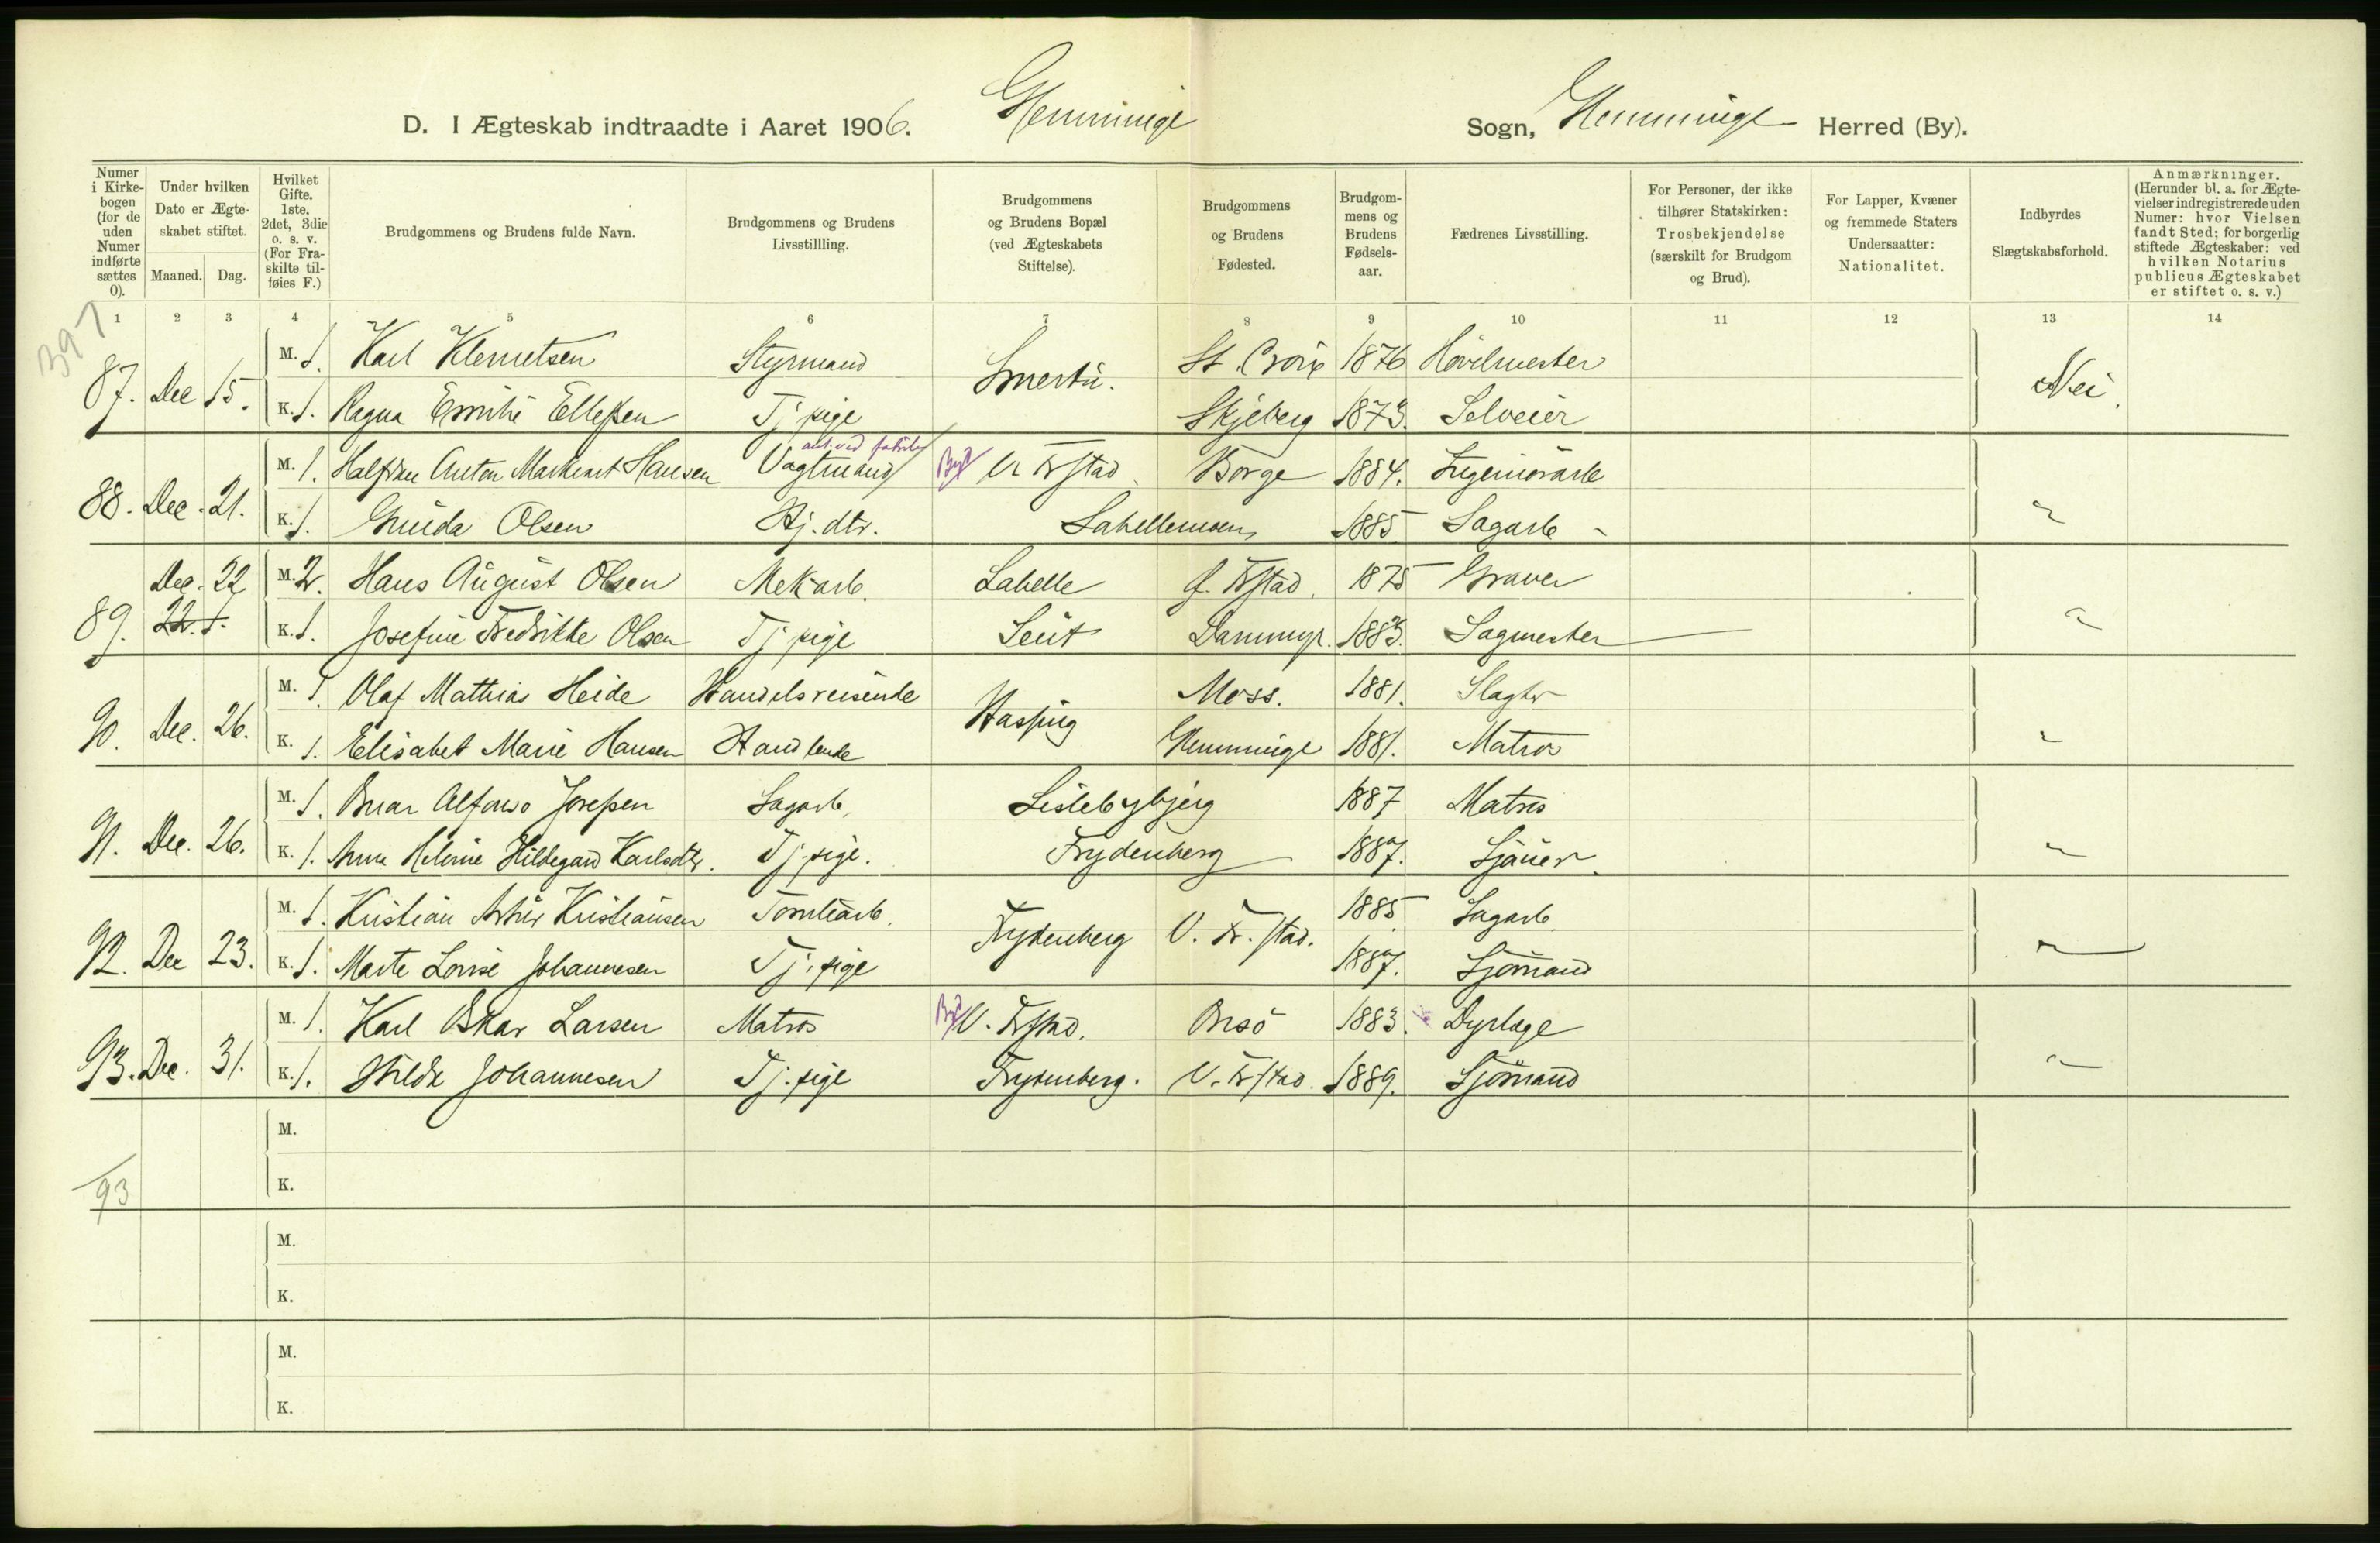 D. I Ægteskab indtraadte i Aaret 1906. Glemminge Sogn, Glemminge Herred (By).
Numer i Kirkebogen (for de uden Numer indførte sættes 0).
Under hvilken Dato er Ægteskabet stiftet.
Maaned. Dag.
Hvilket Gifte. 1ste, 2det, 3die o. s. v. (For Fraskilte tilføies F.)
Brudgommens og Brudens fulde Navn.
Brudgommens og Brudens Livsstillling.
Brudgommens og Brudens Bopæl (ved Ægteskabets Stiftelse).
Brudgommens og Brudens Fødested.
Brudgommens og Brudens Fødselsaar.
Fædrenes Livsstilling.
For Personer, der ikke tilhører Statskirken: Trosbekjendelse (særskilt for Brudgom og Brud).
For Lapper, Kvæner og fremmede Staters Undersaatter: Nationalitet.
Indbyrdes Slægtskabsforhold.
Anmærkninger. (Herunder bl. a. for Ægtevielser indregistrerede uden Numer: hvor Vielsen fandt Sted; for borgerlig stiftede Ægteskaber: ved hvilken Notarius publicus Ægteskabet er stiftet o. s. v.)
1 2 3 4 5 6 7 8 9 10 11 12 13 14
397
87. Dec 15. M. 1. Karl Klemetsen Styrmand Smertu. St. Croix 1876 Høvelmester Nei.
K. 1. Ragna Emilie Ellefsen Tj.pige Skjeberg 1873. Selveier
arb. ved fabrik
88. Dec. 21. M. 1. Halfdan Anton Hansen Vagtmand V Frstad Borge 1884. "
K. 1. Olsen Hj. dtr. Labellemoen 1885 Sagarb
89. Dec. 22 M. 2. Hans August Olsen Mek arb. Labelle G. Frstad. 1875 Graver "
22. 1. K. 1. Josefine Fredrikke Olsen Tj pige Leut Dammyr. 1883. Sagmester
90. Dec. 26. M. 1. Olaf Mathias Heide Handelsreisende Hasping Moss. 1881. Slagter "
K. 1. Elisabet Marie Hansen Handlende Glemminge 1881. Matros
91. Dec. 26. M. 1. Alfonso Josefsen Sagarb. Lislebybjerg 1887 Matros "
K. 1. Anna Helmine Hildegard Karlsdtr. Tj.pige. Frydenberg 1887. Sjauer.
92. Dec 23. M. 1. Kristian Artur Kristiansen Tomtearb. Frydenberg V. Fr.stad. 1885 Sagarb. "
K. 1. Marte Lovise Johannesen Tj.pige 1887. Sjømand
93. Dec. 31. M. 1. Karl Oskar Larsen Matros V. Frstad. Onsö 1883. Dyrlæge "
K. 1. Hilda Johannesen Tj.pige Frydenberg. V. Frstad 1889. Sjömand
M.
93 K.
M.
K.
M.
K.